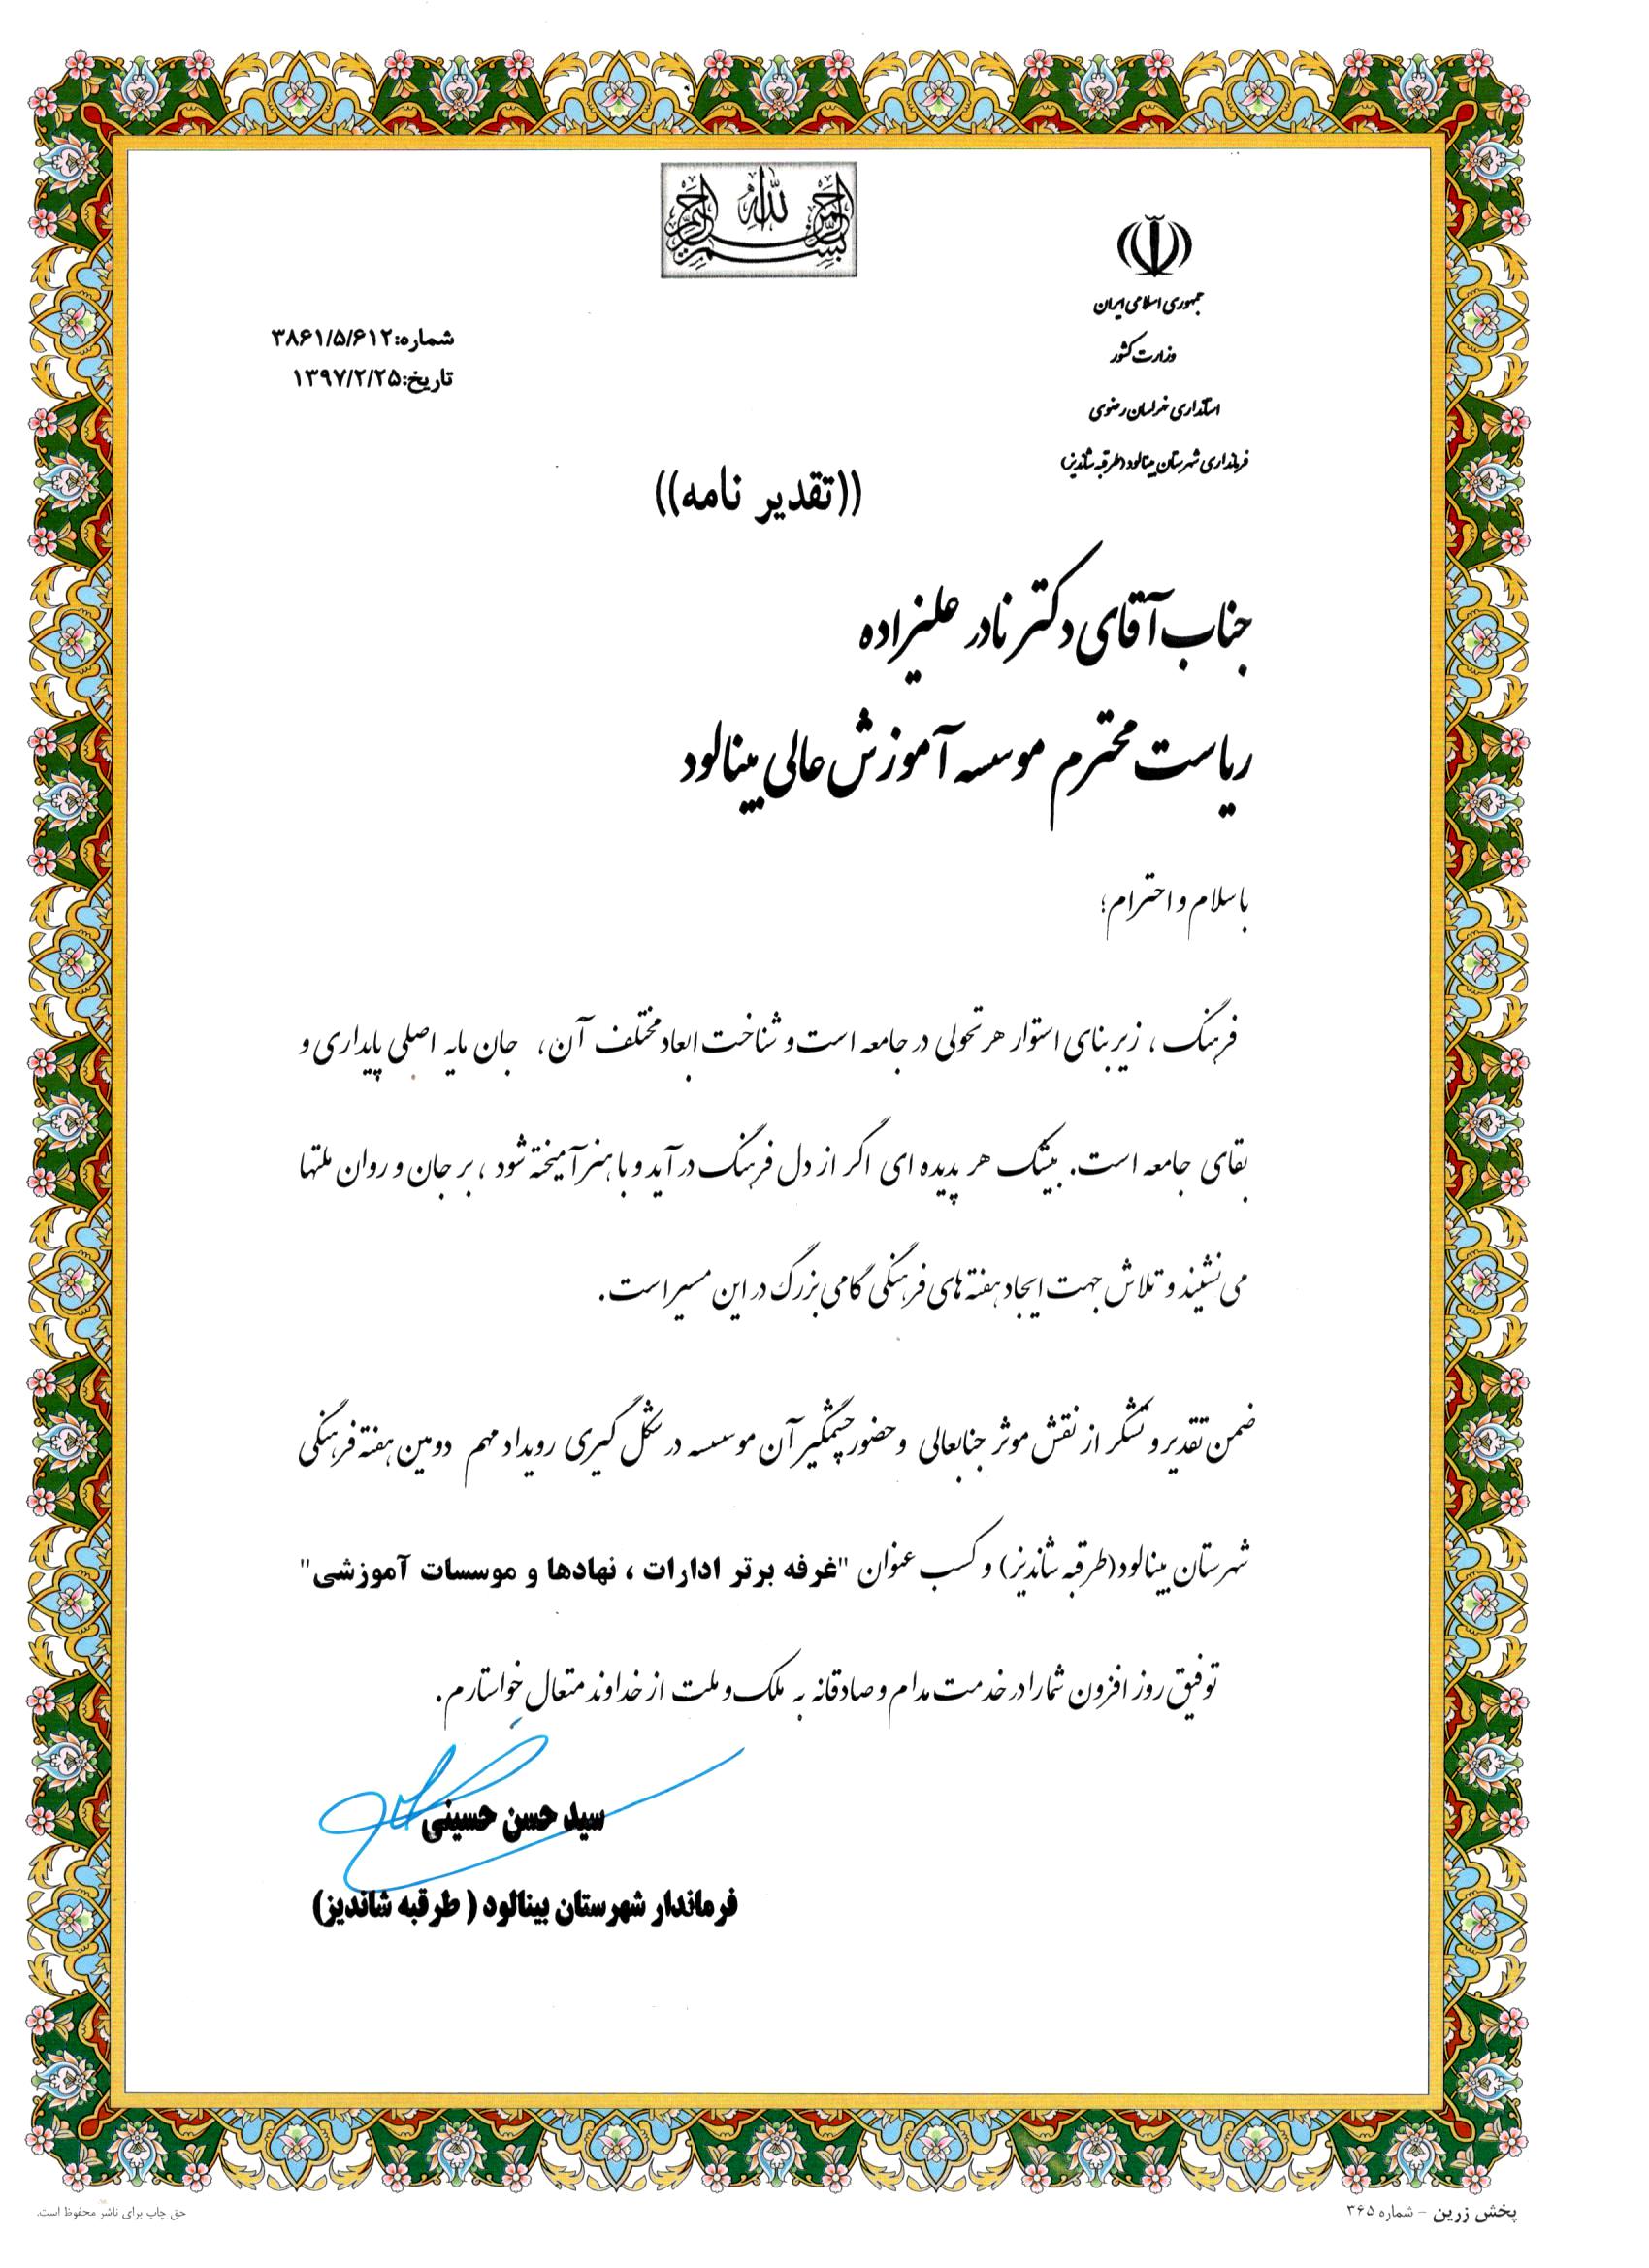 بسم الله الرحمن الرحیم
جمهوری اسلامی ایران
وزارت کشور
استانداری خراسان رضوی
فرمانداری شهرستان بینالود (طرقبه شاندیز)
شماره:۳۸۶۱/۵/۶۱۲
تاریخ:۱۳۹۷/۲/۲۵
((تقدیر نامه))
جناب آقای دکتر نادر علیزاده
ریاست محترم موسسه آموزش عالی بینالود
با سلام و احترام؛
فرهنگ ، زیر بنای استوار هر تحولی در جامعه است و شناخت ابعاد مختلف آن، جان مایه اصلی پایداری و
بقای جامعه است. بیشک هر پدیده ای اگر از دل فرهنگ در آید و با هنر آمیخته شود ، بر جان و روان ملتها
می نشیند و تلاش جهت ایجاد هفته های فرهنگی گامی بزرگ در این مسیر است.
ضمن تقدیر و تشکر از نقش موثر جنابعالی و حضور چشمگیر آن موسسه در شکل گیری رویداد مهم دومین هفته فرهنگی
شهرستان بینالود(طرقبه شاندیز) و کسب عنوان "غرفه برتر ادارات ، نهادها و موسسات آموزشی"
توفیق روز افزون شما را در خدمت مدام و صادقانه به ملک و ملت از خداوند متعال خواستارم.
سید حسن حسینی
فرماندار شهرستان بینالود ( طرقبه شاندیز)
پخش زرین - شماره ۳۶۵
حق چاپ برای ناشر محفوظ است.